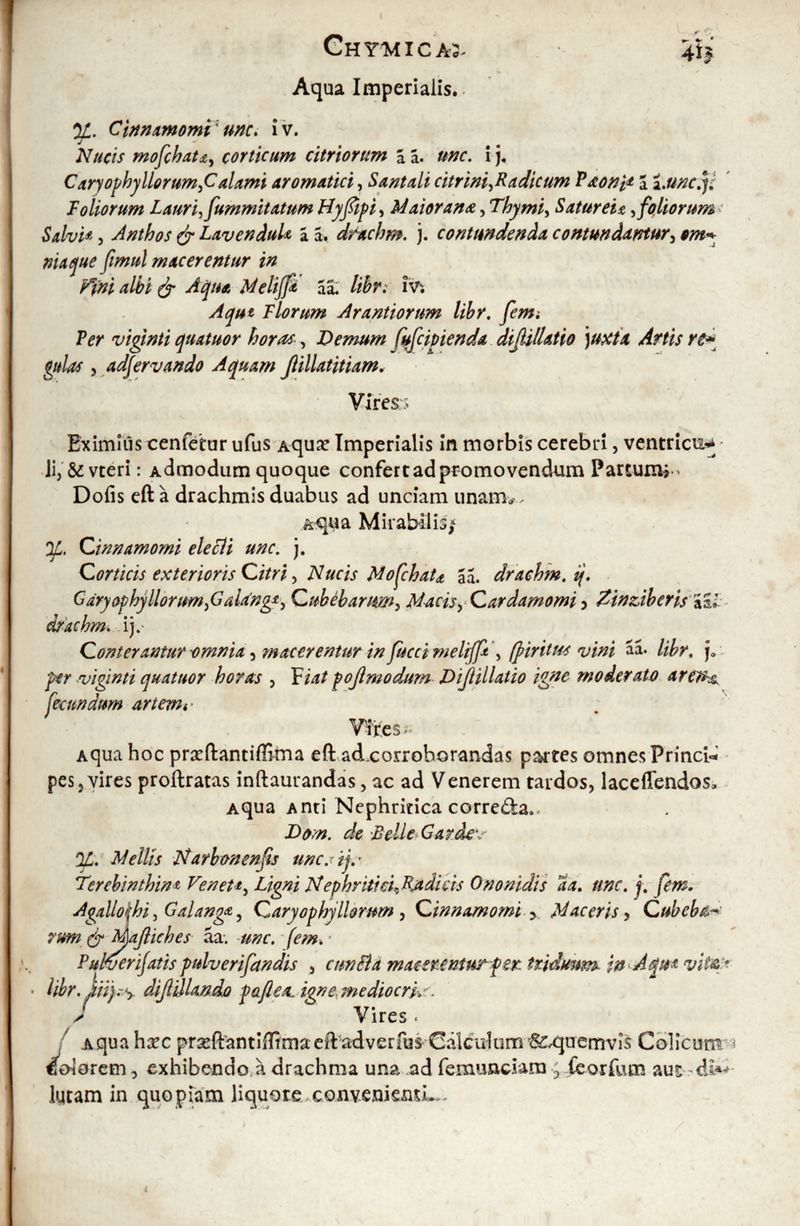 CHYMICAE. 413
Aqua Imperialis.
℞. Cinnamomi unc. iv.
Nucis moschatæ, corticum citriorum ā ā. unc. ij.
Caryophyllorum, Calami aromatici, Santali citrini, Radicum Pæoniæ ā ā. unc. j.
Foliorum Lauri, ſummitatum Hyſſipi, Maioranæ, Thymi, Satureiæ, foliorum
Salviæ, Anthos & Lavendulæ ā ā. drachm. j. contundenda contundantur, om-
niaque ſimul macerentur in
Vini albi & Aquæ Meliſſæ āā. libr. iv.
Aquæ Florum Arantiorum libr. ſem.
Per viginti quatuor horas, Demum ſuſcipienda diſtillatio juxta Artis re-
gulas, adſervando Aquam ſtillatitiam.
Vires.
Eximiùs cenſetur uſus Aquæ Imperialis in morbis cerebri, ventricu-
li, & vteri: Admodum quoque confert ad promovendum Partum;
Doſis eſt à drachmis duabus ad unciam unam.
Aqua Mirabilis,
℞. Cinnamomi electi unc. j.
Corticis exterioris Citri, Nucis Moſchatæ āā. drachm. ij.
Garyophyllorum, Galangæ, Cubebarum, Macis, Cardamomi, Zinziberis āā.
drachm. ij.
Conterantur omnia, macerentur in ſucci meliſſæ, ſpiritus vini āā. libr. j.
per viginti quatuor horas, Fiat poſtmodum Diſtillatio igne moderato arenæ
ſecundum artem.
Vires.
Aqua hoc præſtantiſſima eſt ad corroborandas partes omnes Princi-
pes, vires proſtratas inſtaurandas, ac ad Venerem tardos, laceſſendos.
Aqua Anti Nephritica correcta.
Dom. de Belle Garde.
℞. Mellis Narbonenſis unc. ij.
Terebinthinæ Venetæ, Ligni Nephritici, Radicis Ononidis āa. unc. j. ſem.
Agallochi, Galangæ, Caryophyllorum, Cinnamomi, Maceris, Cubeba-
rum & Maſtiches āa. unc. ſem.
Pulveriſatis pulveriſandis, cuncta macerentur per triduum in Aquæ vitæ
libr. iiij. diſtillando poſtea igne mediocri.
Vires.
Aqua hæc præſtantiſſima eſt adverſus Calculum & quemvis Colicum
dolorem, exhibendo à drachma una ad ſemunciam, ſeorſum aut di-
lutam in quopiam liquore convenienti.